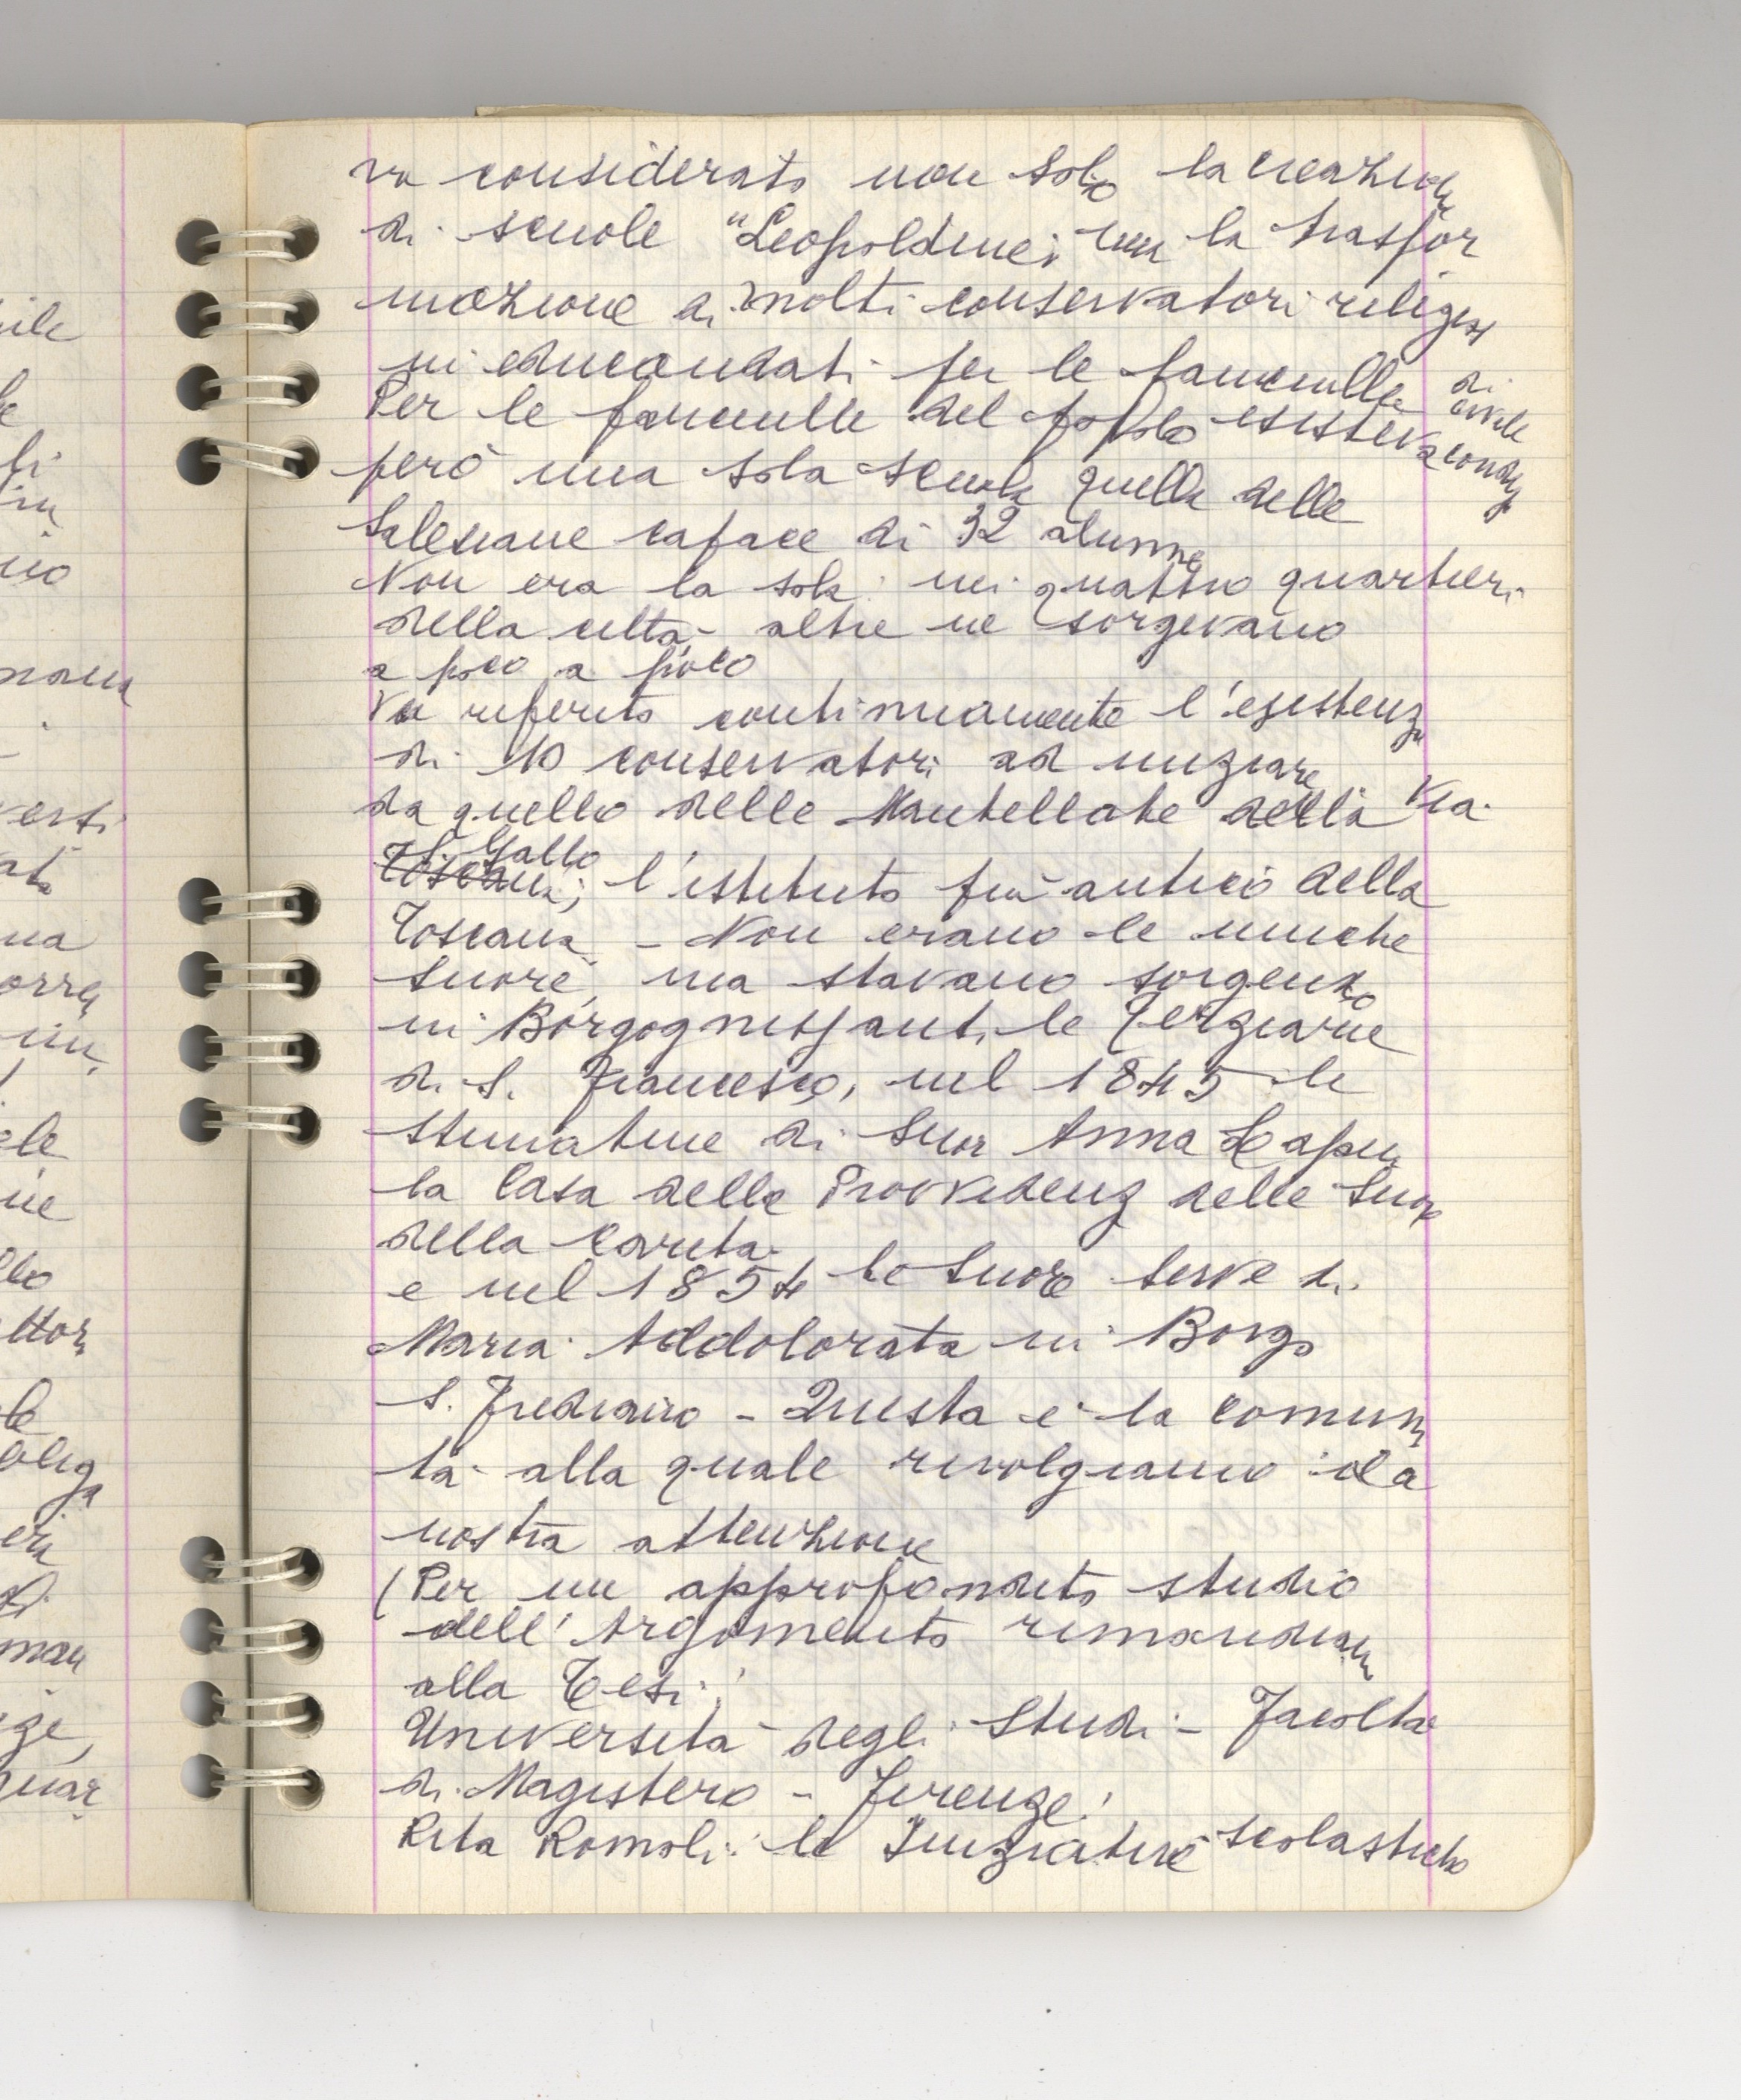 va considerato non solo la creazione
di scuole "Leopoldine", la trasfor
mazione di molti conservatori religiosi
in educandati per le fanciulle di civile condiz
Per le fanciulle del popolo esisteva
però una sola scuola quella delle
Salesiane capace di 32 alunne
Non era la sola: nei quattro quartieri
della città altre ne sorgevano
a poco a poco
Va riferito continuamente l'esistenza
di 10 conservatori ad iniziare
da quello delle Mantellate della Via
S. Gallo
Toscana; l'istituto più antico della
Toscana - Non erano le uniche
suore, ma stavano sorgendo
in Borgognissanti le Terziarie
di S. Francesco, nel 1845 le
stimatine di Suor Anna Lapini
la Casa della Provvidenz delle Suore
della Carità
e nel 1854 le Suore Serve di
Maria Addolorata in Borgo
S. Frediano - Questa è la comuni
tà alla quale rivolgiamo la
nostra attenzione
(Per un approfondito studio
dell'Argomento rimandiam
alla Tesi:
Università degli Studi - Facoltà
di Magistero - Firenze:
Rita Romoli: le Iniziative scolastiche
ile